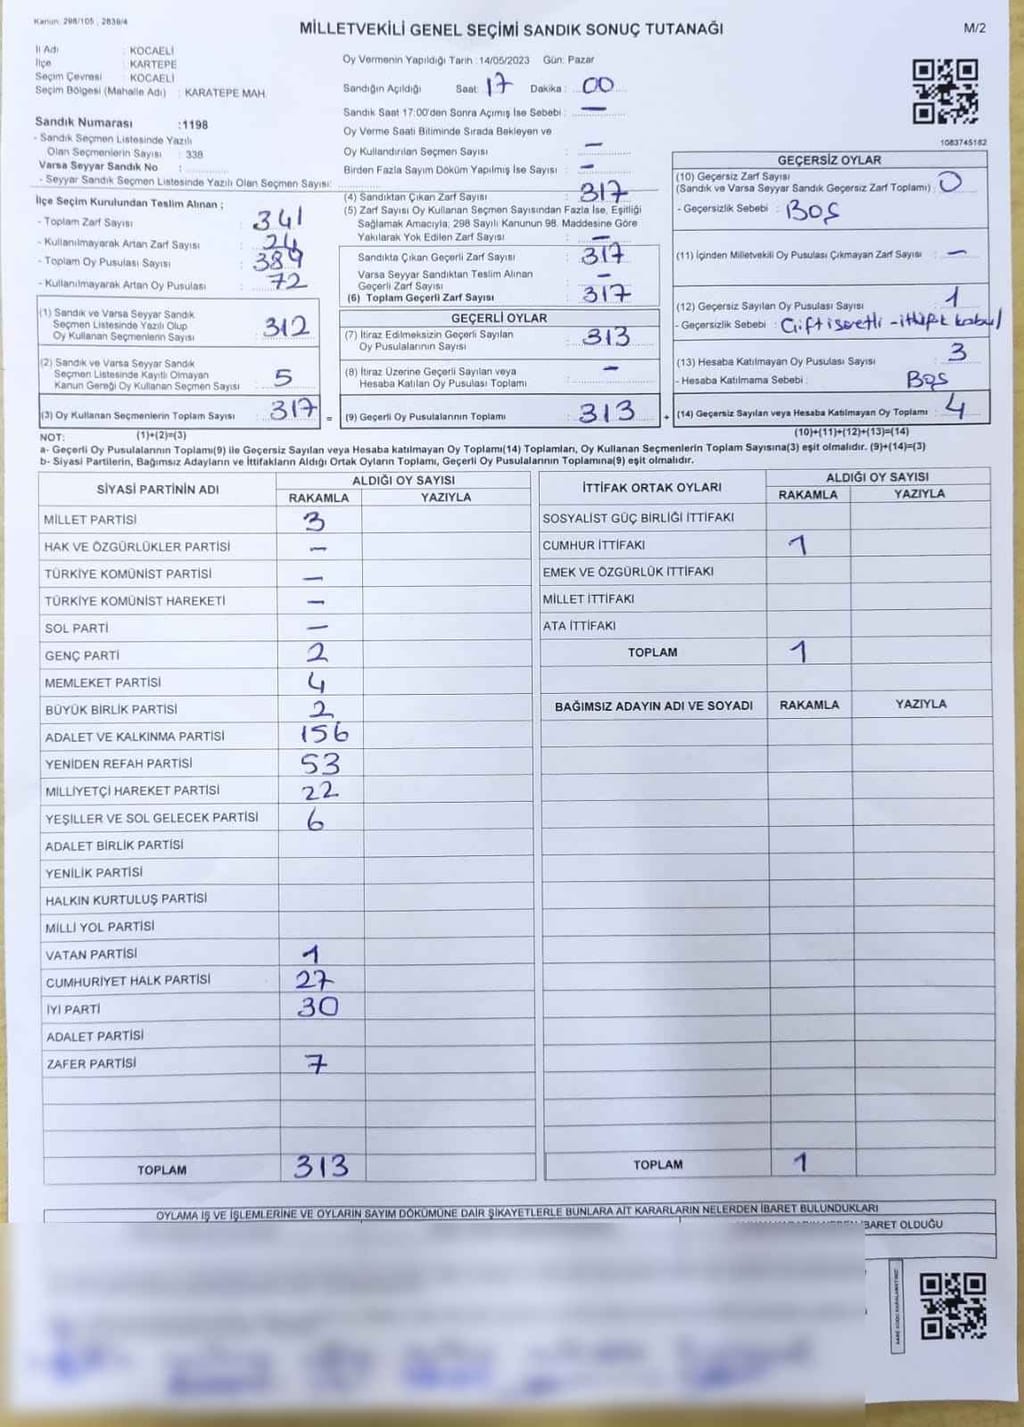 Kanun: 298/105 , 2839/4
MİLLETVEKİLİ GENEL SEÇİMİ SANDIK SONUÇ TUTANAĞI
M/2
İl Adı : KOCAELİ
İlçe : KARTEPE
Seçim Çevresi : KOCAELİ
Seçim Bölgesi (Mahalle Adı) : KARATEPE MAH.
Sandık Numarası :1198
- Sandık Seçmen Listesinde Yazılı
Olan Seçmenlerin Sayısı : 338
Varsa Seyyar Sandık No :
- Seyyar Sandık Seçmen Listesinde Yazılı Olan Seçmen Sayısı:
Oy Vermenin Yapıldığı Tarih :14/05/2023 Gün: Pazar
Sandığın Açıldığı Saat: 17 Dakika: 00
Sandık Saat 17:00'den Sonra Açımış İse Sebebi : —
Oy Verme Saati Bitiminde Sırada Bekleyen ve
Oy Kullandırılan Seçmen Sayısı : —
Birden Fazla Sayım Döküm Yapılmış İse Sayısı : —
1083745182
İlçe Seçim Kurulundan Teslim Alınan ;
- Toplam Zarf Sayısı : 341
- Kullanılmayarak Artan Zarf Sayısı : 24
- Toplam Oy Pusulası Sayısı : 389
- Kullanılmayarak Artan Oy Pusulası : 72
(1) Sandık ve Varsa Seyyar Sandık
Seçmen Listesinde Yazılı Olup
Oy Kullanan Seçmenlerin Sayısı : 312
(2) Sandık ve Varsa Seyyar Sandık
Seçmen Listesinde Kayıtlı Olmayan
Kanun Gereği Oy Kullanan Seçmen Sayısı : 5
(3) Oy Kullanan Seçmenlerin Toplam Sayısı : 317 =
(4) Sandıktan Çıkan Zarf Sayısı : 317
(5) Zarf Sayısı Oy Kullanan Seçmen Sayısından Fazla İse, Eşitliği
Sağlamak Amacıyla, 298 Sayılı Kanunun 98. Maddesine Göre
Yakılarak Yok Edilen Zarf Sayısı : —
Sandıkta Çıkan Geçerli Zarf Sayısı : 317
Varsa Seyyar Sandıktan Teslim Alınan
Geçerli Zarf Sayısı : —
(6) Toplam Geçerli Zarf Sayısı : 317
GEÇERLİ OYLAR
(7) İtiraz Edilmeksizin Geçerli Sayılan
Oy Pusulalarının Sayısı : 313
(8) İtiraz Üzerine Geçerli Sayılan veya
Hesaba Katılan Oy Pusulası Toplamı : —
(9) Geçerli Oy Pusulalarının Toplamı : 313 +
GEÇERSİZ OYLAR
(10) Geçersiz Zarf Sayısı
(Sandık ve Varsa Seyyar Sandık Geçersiz Zarf Toplamı) : 0
- Geçersizlik Sebebi : BOŞ
(11) İçinden Milletvekili Oy Pusulası Çıkmayan Zarf Sayısı : —
(12) Geçersiz Sayılan Oy Pusulası Sayısı : 1
- Geçersizlik Sebebi : Çift işaretli - ittifak kabul
(13) Hesaba Katılmayan Oy Pusulası Sayısı : 3
- Hesaba Katılmama Sebebi : Boş
(14) Geçersiz Sayılan veya Hesaba Katılmayan Oy Toplamı : 4
NOT: (1)+(2)=(3) (10)+(11)+(12)+(13)=(14)
a- Geçerli Oy Pusulalarının Toplamı(9) ile Geçersiz Sayılan veya Hesaba katılmayan Oy Toplamı(14) Toplamları, Oy Kullanan Seçmenlerin Toplam Sayısına(3) eşit olmalıdır. (9)+(14)=(3)
b- Siyasi Partilerin, Bağımsız Adayların ve İttifakların Aldığı Ortak Oyların Toplamı, Geçerli Oy Pusulalarının Toplamına(9) eşit olmalıdır.
SİYASİ PARTİNİN ADI ALDIĞI OY SAYISI
RAKAMLA YAZIYLA
MİLLET PARTİSİ 3
HAK VE ÖZGÜRLÜKLER PARTİSİ —
TÜRKİYE KOMÜNİST PARTİSİ —
TÜRKİYE KOMÜNİST HAREKETİ —
SOL PARTİ —
GENÇ PARTİ 2
MEMLEKET PARTİSİ 4
BÜYÜK BİRLİK PARTİSİ 2
ADALET VE KALKINMA PARTİSİ 156
YENİDEN REFAH PARTİSİ 53
MİLLİYETÇİ HAREKET PARTİSİ 22
YEŞİLLER VE SOL GELECEK PARTİSİ 6
ADALET BİRLİK PARTİSİ
YENİLİK PARTİSİ
HALKIN KURTULUŞ PARTİSİ
MİLLİ YOL PARTİSİ
VATAN PARTİSİ 1
CUMHURİYET HALK PARTİSİ 27
İYİ PARTİ 30
ADALET PARTİSİ
ZAFER PARTİSİ 7
TOPLAM 313
İTTİFAK ORTAK OYLARI ALDIĞI OY SAYISI
RAKAMLA YAZIYLA
SOSYALİST GÜÇ BİRLİĞİ İTTİFAKI
CUMHUR İTTİFAKI 1
EMEK VE ÖZGÜRLÜK İTTİFAKI
MİLLET İTTİFAKI
ATA İTTİFAKI
TOPLAM 1
BAĞIMSIZ ADAYIN ADI VE SOYADI RAKAMLA YAZIYLA
TOPLAM 1
OYLAMA İŞ VE İŞLEMLERİNE VE OYLARIN SAYIM DÖKÜMÜNE DAİR ŞİKAYETLERLE BUNLARA AİT KARARLARIN NELERDEN İBARET BULUNDUKLARI
İBARET OLDUĞU